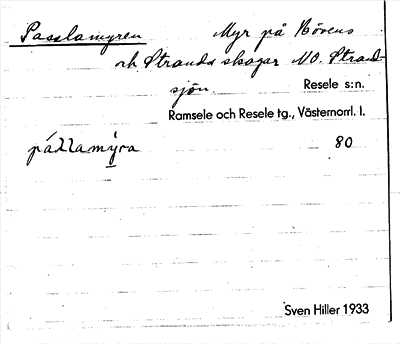 Passlamyren Myr på Bövens
och Strands skogar NO. Strand-
sjön. Resele s:n.
Ramsele och Resele tg., Västernorrl. l.
pállamỳra 80
Sven Hiller 1933